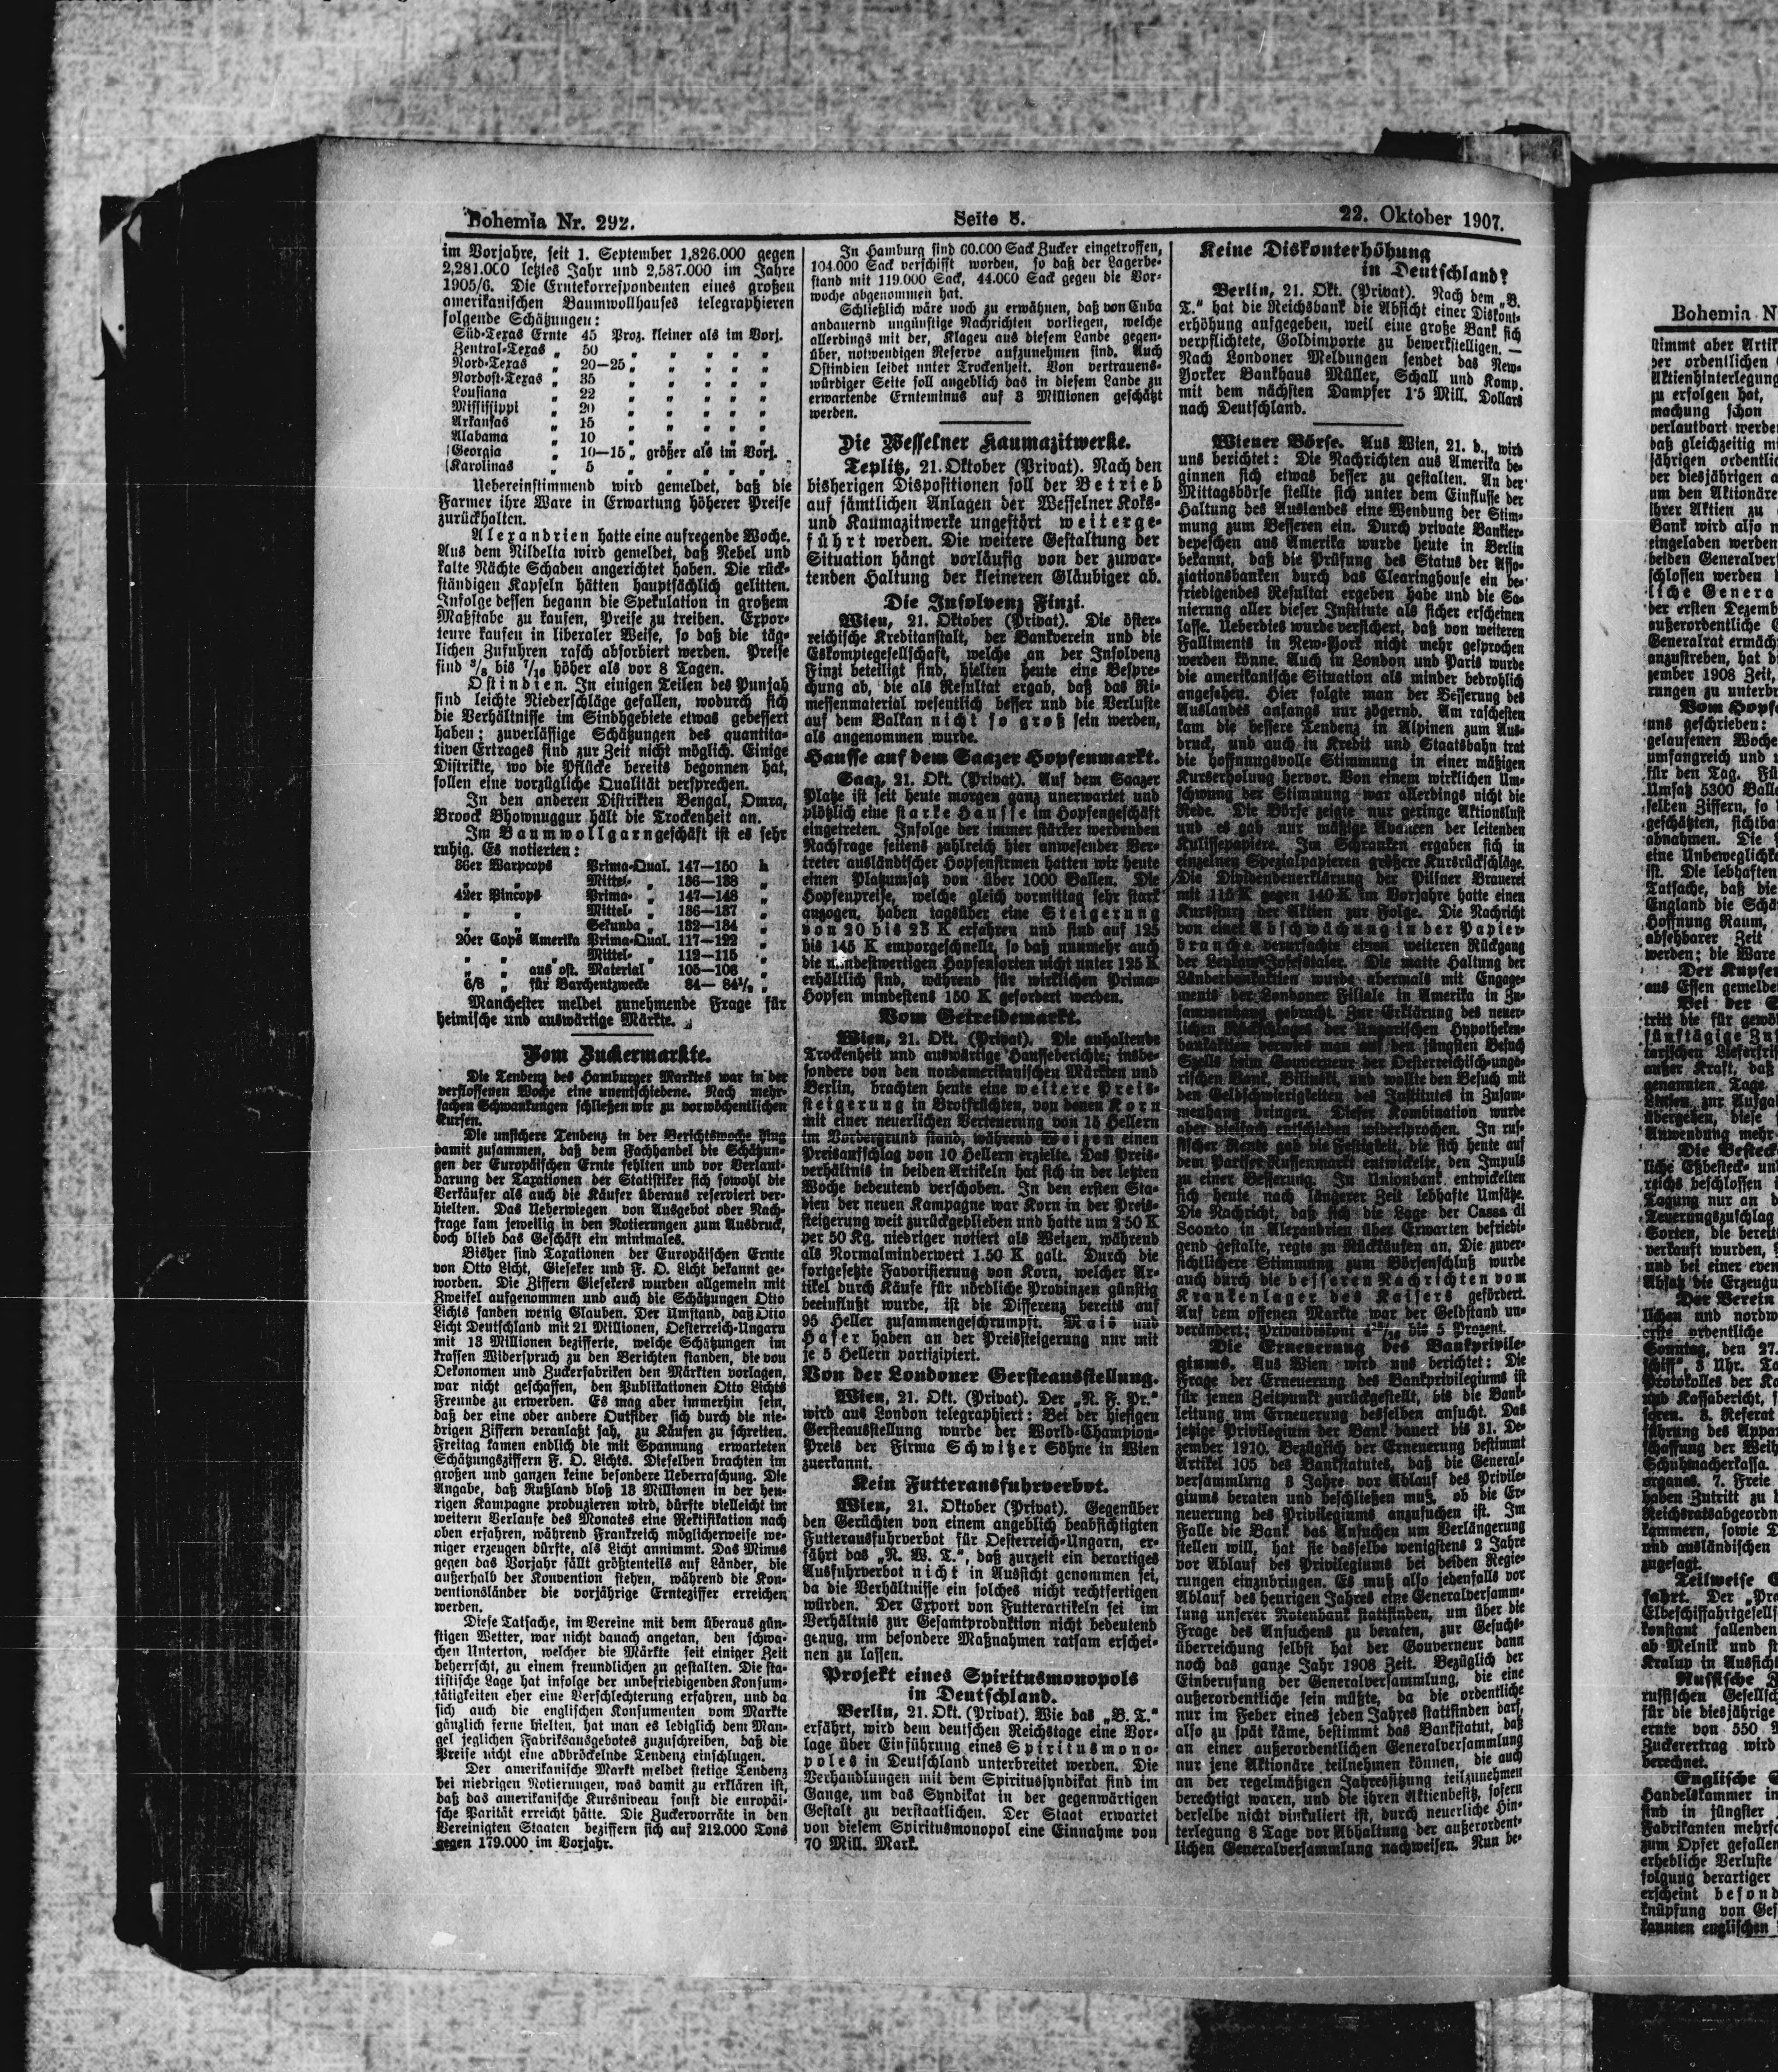 Bohemia Nr. 292.
Seite 5.
22. Oktober 1907.
im Vorjahre, seit 1. September 1,826.000 gegen
2,281.000 letztes Jahr und 2,587.000 im Jahre
1905/6. Die Erntekorrespondenten eines großen
amerikanischen Baumwollhauses telegraphieren
folgende Schätzungen:
Süd-Texas Ernte 45 Proz. kleiner als im Vorj.
Zentral-Texas „ 50 „ „ „ „ „
Nord-Texas „ 20—25 „ „ „ „ „
Nordost-Texas „ 35 „ „ „ „ „
Lousiana „ 22 „ „ „ „ „
Mississippi „ 20 „ „ „ „ „
Arkansas „ 15 „ „ „ „ „
Alabama „ 10 „ „ „ „ „
Georgia „ 10—15 „ größer als im Vorj.
Karolinas „ 5 „ „ „ „ „
Uebereinstimmend wird gemeldet, daß die
Farmer ihre Ware in Erwartung höherer Preise
zurückhalten.
Alexandrien hatte eine aufregende Woche.
Aus dem Nildelta wird gemeldet, daß Nebel und
kalte Nächte Schaden angerichtet haben. Die rück-
ständigen Kapseln hätten hauptsächlich gelitten.
Infolge dessen begann die Spekulation in großem
Maßstabe zu kaufen, Preise zu treiben. Expor-
teure kaufen in liberaler Weise, so daß die täg-
lichen Zufuhren rasch absorbiert werden. Preise
sind 3/8 bis 7/16 höher als vor 8 Tagen.
Ostindien. In einigen Teilen des Punjab
sind leichte Niederschläge gefallen, wodurch sich
die Verhältnisse im Sindhgebiete etwas gebessert
haben; zuverlässige Schätzungen des quantita-
tiven Ertrages sind zur Zeit nicht möglich. Einige
Distrikte, wo die Pflücke bereits begonnen hat,
sollen eine vorzügliche Qualität versprechen.
In den anderen Distrikten Bengal, Omra,
Broock Bhownuggur hält die Trockenheit an.
Im Baumwollgarngeschäft ist es sehr
ruhig. Es notierten:
36er Warpcops Prima-Qual. 147—150 h
„ „ Mittel- „ 136—138 „
42er Pincops Prima- „ 147—148 „
„ „ Mittel- „ 136—137 „
„ „ Sekunda „ 132—134 „
20er Cops Amerika Prima-Qual. 117—122 „
„ „ „ Mittel- „ 112—115 „
„ „ aus ost. Material 105—106 „
6/8 „ für Barchentzwecke 84— 84½ „
Manchester meldet zunehmende Frage für
heimische und auswärtige Märkte.
Vom Zuckermarkte.
Die Tendenz des Hamburger Marktes war in der
verflossenen Woche eine unentschiedene. Nach mehr-
fachen Schwankungen schließen wir zu vorwöchentlichen
Kursen.
Die unsichere Tendenz in der Berichtswoche hing
damit zusammen, daß dem Fachhandel die Schätzun-
gen der Europäischen Ernte fehlten und vor Verlaut-
barung der Taxationen der Statistiker sich sowohl die
Verkäufer als auch die Käufer überaus reserviert ver-
hielten. Das Ueberwiegen von Ausgebot oder Nach-
frage kam jeweilig in den Notierungen zum Ausdruck,
doch blieb das Geschäft ein minimales.
Bisher sind Taxationen der Europäischen Ernte
von Otto Licht, Gieseker und F. O. Licht bekannt ge-
worden. Die Ziffern Giesekers wurden allgemein mit
Zweifel aufgenommen und auch die Schätzungen Otto
Lichts fanden wenig Glauben. Der Umstand, daß Otto
Licht Deutschland mit 21 Millionen, Oesterreich-Ungarn
mit 13 Millionen bezifferte, welche Schätzungen im
krassen Widerspruch zu den Berichten standen, die von
Oekonomen und Zuckerfabriken den Märkten vorlagen,
war nicht geschaffen, den Publikationen Otto Lichts
Freunde zu erwerben. Es mag aber immerhin sein,
daß der eine oder andere Outsider sich durch die nie-
drigen Ziffern veranlaßt sah, zu Käufen zu schreiten.
Freitag kamen endlich die mit Spannung erwarteten
Schätzungsziffern F. O. Lichts. Dieselben brachten im
großen und ganzen keine besondere Ueberraschung. Die
Angabe, daß Rußland bloß 13 Millionen in der heu-
rigen Kampagne produzieren wird, dürfte vielleicht im
weitern Verlaufe des Monates eine Rektifikation nach
oben erfahren, während Frankreich möglicherweise we-
niger erzeugen dürfte, als Licht annimmt. Das Minus
gegen das Vorjahr fällt größtenteils auf Länder, die
außerhalb der Konvention stehen, während die Kon-
ventionsländer die vorjährige Ernteziffer erreichen
werden.
Diese Tatsache, im Vereine mit dem überaus gün-
stigen Wetter, war nicht danach angetan, den schwa-
chen Unterton, welcher die Märkte seit einiger Zeit
beherrscht, zu einem freundlichen zu gestalten. Die sta-
tistische Lage hat infolge der unbefriedigenden Konsum-
tätigkeiten eher eine Verschlechterung erfahren, und da
sich auch die englischen Konsumenten vom Markte
gänzlich ferne hielten, hat man es lediglich dem Man-
gel jeglichen Fabriksausgebotes zuzuschreiben, daß die
Preise nicht eine abbröckelnde Tendenz einschlugen.
Der amerikanische Markt meldet stetige Tendenz
bei niedrigen Notierungen, was damit zu erklären ist,
daß das amerikanische Kursniveau sonst die europäi-
sche Parität erreicht hätte. Die Zuckervorräte in den
Vereinigten Staaten beziffern sich auf 212.000 Tons
gegen 179.000 im Vorjahr.
In Hamburg sind 60.000 Sack Zucker eingetroffen,
104.000 Sack verschifft worden, so daß der Lagerbe-
stand mit 119.000 Sack, 44.000 Sack gegen die Vor-
woche abgenommen hat.
Schließlich wäre noch zu erwähnen, daß von Cuba
andauernd ungünstige Nachrichten vorliegen, welche
allerdings mit der, Klagen aus diesem Lande gegen-
über, notwendigen Reserve aufzunehmen sind. Auch
Ostindien leidet unter Trockenheit. Von vertrauens-
würdiger Seite soll angeblich das in diesem Lande zu
erwartende Ernteminus auf 3 Millionen geschätzt
werden.
Die Wesselner Kaumazitwerke.
Teplitz, 21. Oktober (Privat). Nach den
bisherigen Dispositionen soll der Betrieb
auf sämtlichen Anlagen der Wesselner Koks-
und Kaumazitwerke ungestört weiterge-
führt werden. Die weitere Gestaltung der
Situation hängt vorläufig von der zuwar-
tenden Haltung der kleineren Gläubiger ab.
Die Insolvenz Finzi.
Wien, 21. Oktober (Privat). Die öster-
reichische Kreditanstalt, der Bankverein und die
Eskomptegesellschaft, welche an der Insolvenz
Finzi beteiligt sind, hielten heute eine Bespre-
chung ab, die als Resultat ergab, daß das Ri-
messenmaterial wesentlich besser und die Verluste
auf dem Balkan nicht so groß sein werden,
als angenommen wurde.
Hausse auf dem Saazer Hopfenmarkt.
Saaz, 21. Okt. (Privat). Auf dem Saazer
Platze ist seit heute morgen ganz unerwartet und
plötzlich eine starke Hausse im Hopfengeschäft
eingetreten. Infolge der immer stärker werdenden
Nachfrage seitens zahlreich hier anwesender Ver-
treter ausländischer Hopfenfirmen hatten wir heute
einen Platzumsatz von über 1000 Ballen. Die
Hopfenpreise, welche gleich vormittag sehr stark
anzogen, haben tagsüber eine Steigerung
von 20 bis 25 K erfahren und sind auf 125
bis 145 K emporgeschnellt, so daß nunmehr auch
die mindestwertigen Hopfensorten nicht unter 125 K
erhältlich sind, während für wirklichen Prima-
Hopfen mindestens 150 K gefordert werden.
Vom Getreidemarkt.
Wien, 21. Okt. (Privat). Die anhaltende
Trockenheit und auswärtige Hausseberichte, insbe-
sondere von den nordamerikanischen Märkten und
Berlin, brachten heute eine weitere Preis-
steigerung in Brotfrüchten, von denen Korn
mit einer neuerlichen Verteuerung von 15 Hellern
im Vordergrund stand, während Weizen einen
Preisaufschlag von 10 Hellern erzielte. Das Preis-
verhältnis in beiden Artikeln hat sich in der letzten
Woche bedeutend verschoben. In den ersten Sta-
dien der neuen Kampagne war Korn in der Preis-
steigerung weit zurückgeblieben und hatte um 2·50 K
per 50 Kg. niedriger notiert als Weizen, während
als Normalminderwert 1.50 K galt. Durch die
fortgesetzte Favorisierung von Korn, welcher Ar-
tikel durch Käufe für nördliche Provinzen günstig
beeinflußt wurde, ist die Differenz bereits auf
95 Heller zusammengeschrumpft. Mais und
Hafer haben an der Preissteigerung nur mit
je 5 Hellern partizipiert.
Von der Londoner Gersteausstellung.
Wien, 21. Okt. (Privat). Der „N. F. Pr.“
wird aus London telegraphiert: Bei der hiesigen
Gersteausstellung wurde der World-Champion-
Preis der Firma Schwitzer Söhne in Wien
zuerkannt.
Kein Futterausfuhrverbot.
Wien, 21. Oktober (Privat). Gegenüber
den Gerüchten von einem angeblich beabsichtigten
Futterausfuhrverbot für Oesterreich-Ungarn, er-
fährt das „N. W. T.“, daß zurzeit ein derartiges
Ausfuhrverbot nicht in Aussicht genommen sei,
da die Verhältnisse ein solches nicht rechtfertigen
würden. Der Export von Futterartikeln sei im
Verhältnis zur Gesamtproduktion nicht bedeutend
genug, um besondere Maßnahmen ratsam erschei-
nen zu lassen.
Projekt eines Spiritusmonopols
in Deutschland.
Berlin, 21. Okt. (Privat). Wie das „B. T.“
erfährt, wird dem deutschen Reichstage eine Vor-
lage über Einführung eines Spiritusmono-
poles in Deutschland unterbreitet werden. Die
Verhandlungen mit dem Spiritussyndikat sind im
Gange, um das Syndikat in der gegenwärtigen
Gestalt zu verstaatlichen. Der Staat erwartet
von diesem Spiritusmonopol eine Einnahme von
70 Mill. Mark.
Keine Diskonterhöhung
in Deutschland?
Berlin, 21. Okt. (Privat). Nach dem „B.
T.“ hat die Reichsbank die Absicht einer Diskont-
erhöhung aufgegeben, weil eine große Bank sich
verpflichtete, Goldimporte zu bewerkstelligen. —
Nach Londoner Meldungen sendet das New-
Yorker Bankhaus Müller, Schall und Komp.
mit dem nächsten Dampfer 1·5 Mill. Dollars
nach Deutschland.
Wiener Börse. Aus Wien, 21. d., wird
uns berichtet: Die Nachrichten aus Amerika be-
ginnen sich etwas besser zu gestalten. An der
Mittagsbörse stellte sich unter dem Einflusse der
Haltung des Auslandes eine Wendung der Stim-
mung zum Besseren ein. Durch private Bankier-
depeschen aus Amerika wurde heute in Berlin
bekannt, daß die Prüfung des Status der Asso-
ziationsbanken durch das Clearinghouse ein be-
friedigendes Resultat ergeben habe und die Sa-
nierung aller dieser Institute als sicher erscheinen
lasse. Ueberdies wurde versichert, daß von weiteren
Falliments in New-York nicht mehr gesprochen
werden könne. Auch in London und Paris wurde
die amerikanische Situation als minder bedrohlich
angesehen. Hier folgte man der Besserung des
Auslandes anfangs nur zögernd. Am raschesten
kam die bessere Tendenz in Alpinen zum Aus-
druck, und auch in Kredit und Staatsbahn trat
die hoffnungsvolle Stimmung in einer mäßigen
Kurserholung hervor. Von einem wirklichen Um-
schwung der Stimmung war allerdings nicht die
Rede. Die Börse zeigte nur geringe Aktionslust
und es gab nur mäßige Avancen der leitenden
Kulissepapiere. Im Schranken ergaben sich in
einzelnen Spezialpapieren größere Kursrückschläge.
Die Dividendenerklärung der Pilsner Brauerei
mit 115 K gegen 140 K im Vorjahre hatte einen
Kurssturz der Aktien zur Folge. Die Nachricht
von einer Abschwächung in der Papier-
branche verursachte einen weiteren Rückgang
der Leykam-Josefstaler. Die matte Haltung der
Länderbankaktien wurde abermals mit Engage-
ments der Londoner Filiale in Amerika in Zu-
sammenhang gebracht. Zur Erklärung des neuer-
lichen Rückschlages der Ungarischen Hypotheken-
bankaktien verwies man auf den jüngsten Besuch
Szells beim Gouverneur der Oesterreichisch-unga-
rischen Bank, Bilinski, und wollte den Besuch mit
den Geldschwierigkeiten des Institutes in Zusam-
menhang bringen. Dieser Kombination wurde
aber vielfach entschieden widersprochen. In rus-
sischer Rente gab die Festigkeit, die sich heute auf
dem Pariser Russenmarkt entwickelte, den Impuls
zu einer Besserung. In Unionbank entwickelten
sich heute nach längerer Zeit lebhafte Umsätze.
Die Nachricht, daß sich die Lage der Cassa di
Sconto in Alexandrien über Erwarten befriedi-
gend gestalte, regte zu Rückkäufen an. Die zuver-
sichtlichere Stimmung zum Börsenschluß wurde
auch durch die besseren Nachrichten vom
Krankenlager des Kaisers gefördert.
Auf dem offenen Markte war der Geldstand un-
verändert; Privatdiskont 4 15/16 bis 5 Prozent.
Die Erneuerung des Bankprivile-
giums. Aus Wien wird uns berichtet: Die
Frage der Erneuerung des Bankprivilegiums ist
für jenen Zeitpunkt zurückgestellt, bis die Bank-
leitung um Erneuerung desselben ansucht. Das
jetzige Privilegium der Bank dauert bis 31. De-
zember 1910. Bezüglich der Erneuerung bestimmt
Artikel 105 des Bankstatutes, daß die General-
versammlung 3 Jahre vor Ablauf des Privile-
giums beraten und beschließen muß, ob die Er-
neuerung des Privilegiums anzusuchen ist. Im
Falle die Bank das Ansuchen um Verlängerung
stellen will, hat sie dasselbe wenigstens 2 Jahre
vor Ablauf des Privilegiums bei beiden Regie-
rungen einzubringen. Es muß also jedenfalls vor
Ablauf des heurigen Jahres eine Generalversamm-
lung unserer Notenbank stattfinden, um über die
Frage des Ansuchens zu beraten, zur Gesuchs-
überreichung selbst hat der Gouverneur dann
noch das ganze Jahr 1908 Zeit. Bezüglich der
Einberufung der Generalversammlung, die eine
außerordentliche sein müßte, da die ordentliche
nur im Feber eines jeden Jahres stattfinden darf,
also zu spät käme, bestimmt das Bankstatut, daß
an einer außerordentlichen Generalversammlung
nur jene Aktionäre teilnehmen können, die auch
an der regelmäßigen Jahressitzung teilzunehmen
berechtigt waren, und die ihren Aktienbesitz, sofern
derselbe nicht vinkuliert ist, durch neuerliche Hin-
terlegung 8 Tage vor Abhaltung der außerordent-
lichen Generalversammlung nachweisen. Nun be-
Bohemia N
stimmt aber Artik
der ordentlichen
Aktienhinterlegung
zu erfolgen hat,
machung schon
verlautbart werde
daß gleichzeitig mi
jährigen ordentlic
der diesjährigen a
um den Aktionäre
ihrer Aktien zu
Bank wird also n
eingeladen werden
beiden Generalver
schlossen werden
liche Genera
der ersten Dezemb
außerordentliche G
Generalrat ermäch
anzustreben, hat d
zember 1908 Zeit,
rungen zu unterbr
Vom Hopf
uns geschrieben:
gelaufenen Woche
umfangreich und
für den Tag. Fü
Umsatz 5300 Balle
selben Ziffern, so
geschätzten, sichtba
abnahmen. Die
eine Unbeweglichke
ist. Die lebhaften
Tatsache, daß die
England die Schä
Hoffnung Raum,
absehbarer Zeit
werden; die Ware
Der Kupfer
aus Essen gemelde
Bei der
tritt die für gewö
fünftägige Zu
tarischen Lieferfris
außer Kraft, daß
genannten Tage
Linien zur Aufga
übergehen, diese
Anwendung mehr
Die Besteck
liche Eßbesteck- un
reichs beschlossen
Tagung nur an
Teuerungszuschlag
Sorten, die bereit
verkauft wurden,
und bei einer even
Absatz die Erzeugu
Der Verein
lichen und nordw
erste ordentliche
Sonntag, den 27.
schiff“ 3 Uhr. Ta
Protokolles der Ko
und Kassabericht,
soren. 3. Referat
führung des Appar
schaffung der Weih
Schuhmacherkassa.
organes. 7. Freie
haben Zutritt zu
Reichsratsabgeordn
kammern, sowie
und ausländischen
zugesagt.
Teilweise
fahrt. Der „Pra
Elbeschiffahrtgesells
konstant fallenden
ab Melnik und
Kralup in Aussicht
Russische
russischen Gesellsch
für die diesjährige
ernte von 550
Zuckerertrag wird
berechnet.
Englische
Handelskammer in
sind in jüngster
Fabrikanten mehrfa
zum Opfer gefallen
erhebliche Verluste
folgung derartiger
erscheint besond
knüpfung von Gesch
kannten englischen